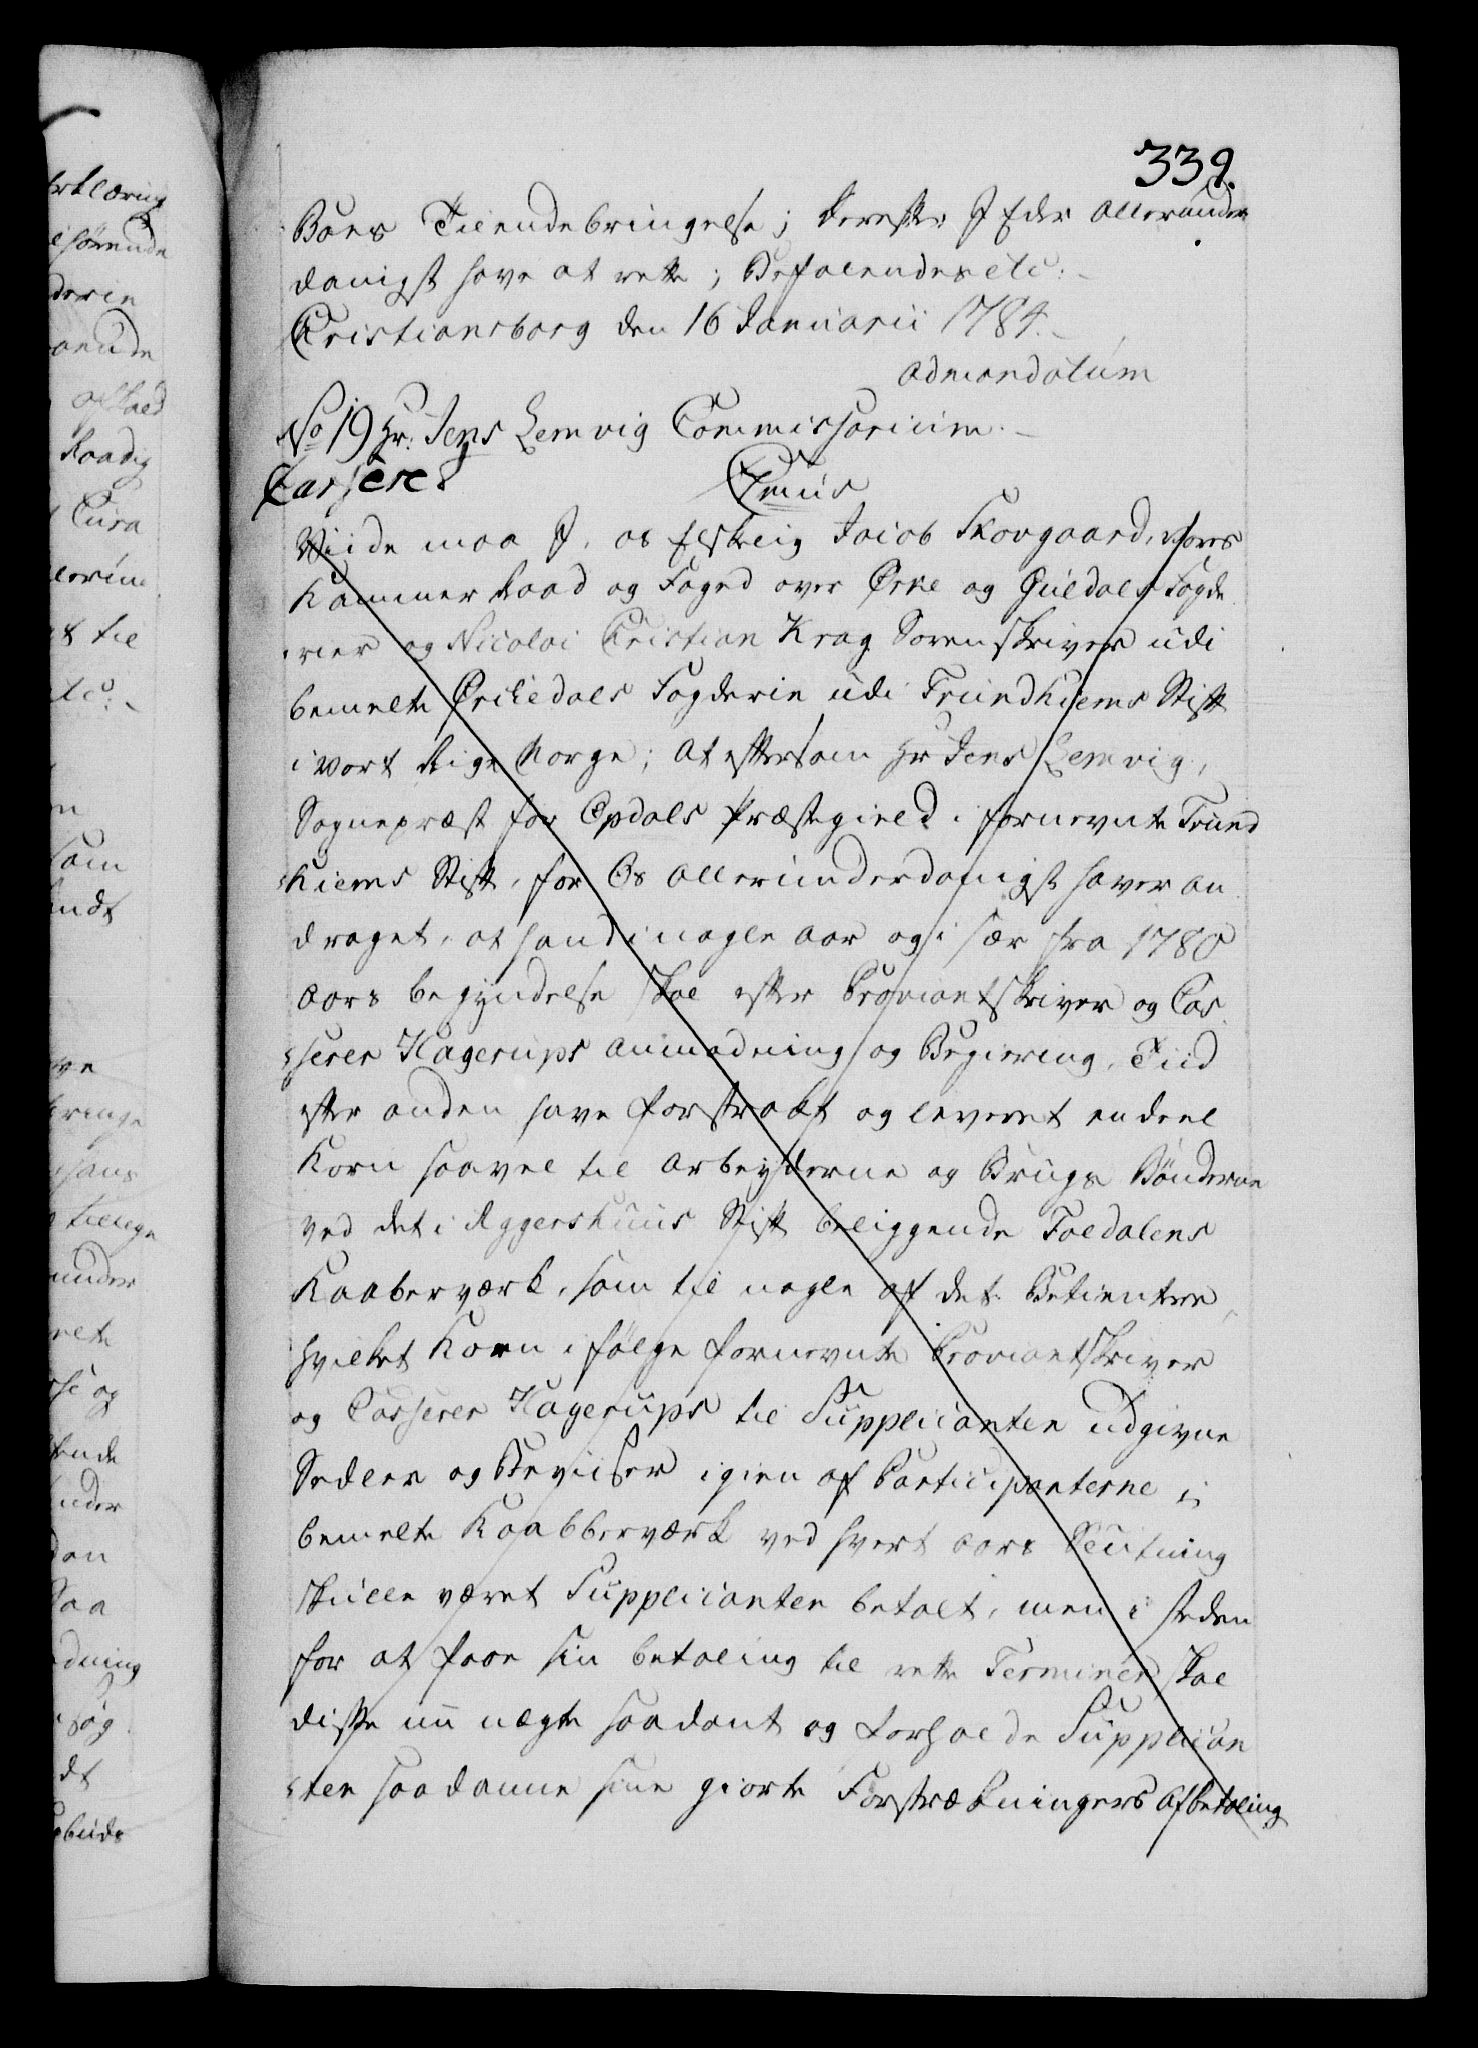 339.
Boes Tilendebringelse; derefter I Eder allerunder
danigst have at rette; Befalendes etc:
Christiansborg den 16 Januarii 1784.
admandatum
No 19 Hr: Jens Lemvig Commissorium.
Casseret
Cmus
Viide maa I, os Elskelig Jacob Skovgaard, Vores
Kammer Raad og Foged over Örke og Guldals Fogde
rier og Nicolai Cristian Krag Sorenskriver udi
bemelte Örkedals Fogderie udi Trundhiems Stift
i vort Rige Norge; At eftersom Hr Jens Lemvig,
Sognepræst for Opdals Præstegield i fornevnte Trund
hiems Stift, for Os allerunderdanigst haver an
draget, at hand i nogle aar og i sær fra 1780
aars begyndelse skal efter Proviantskriver og Cas
serer Hagerups anmodning og Begiering, Tiid
efter anden have forstrakt og leveret en deel
Korn saavel til Arbeyderne og Brugs Bönderne
ved det i Aggershuus Stift beliggende Foldalens
Kaaberværk, som til nogle af dets Betientere,
hvilket Korn i fölge fornevnte Proviantskriver
og Casserer Hagerups til Supplicanten udgivne
Sedler og Beviiser igien af Participanterne i
bemelte Kaabberværk ved hvert aars Slutning
skulle været Supplicanten betalt, men i steden
for at faae sin betaling til rette Terminer, skal
disse nu nægte saadant og forholde Supplican
ten saadanne sine giorte Forstrækningers Afbetaling